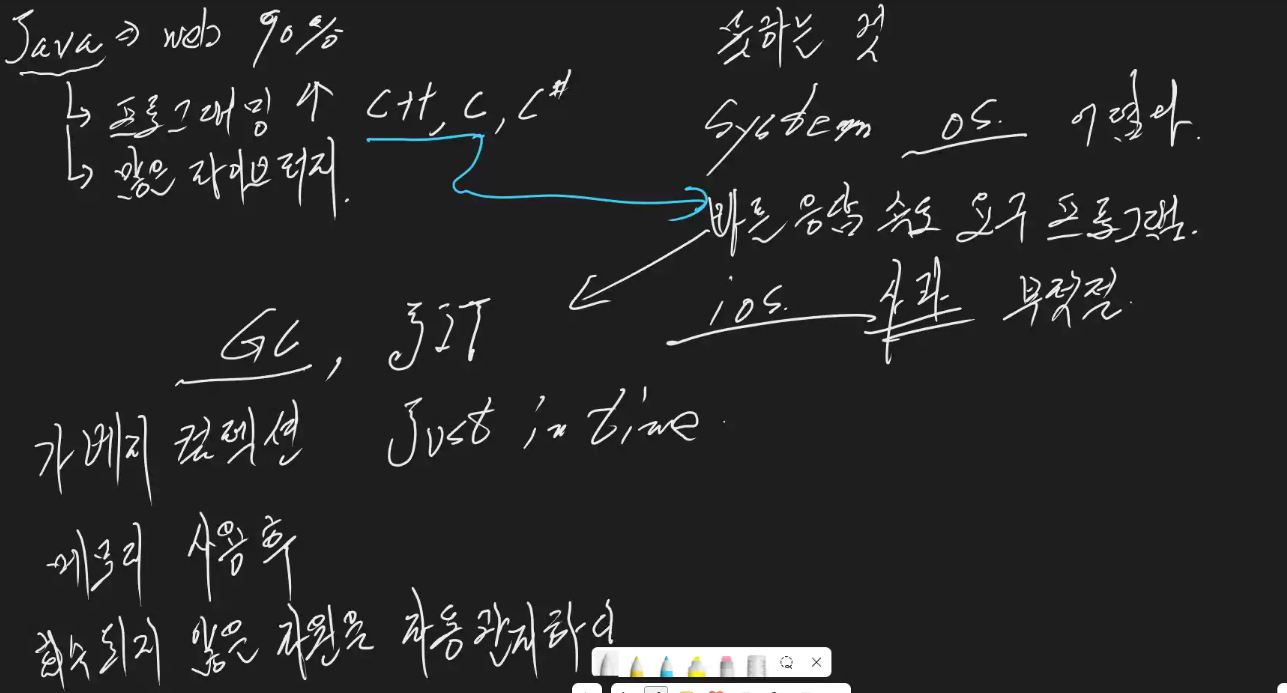 Java ⇒ web 90%
↳ 프로그래밍 ↑ C++, C, C#
↳ 많은 라이브러리.
못하는 것
System OS. 어렵다.
빠른 응답 속도 요구 프로그램.
ios. 부적절.
GC, JIT
가베지 컬렉션 Just in time.
메모리 사용 후
회수되지 않은 자원을 자동 관리하여